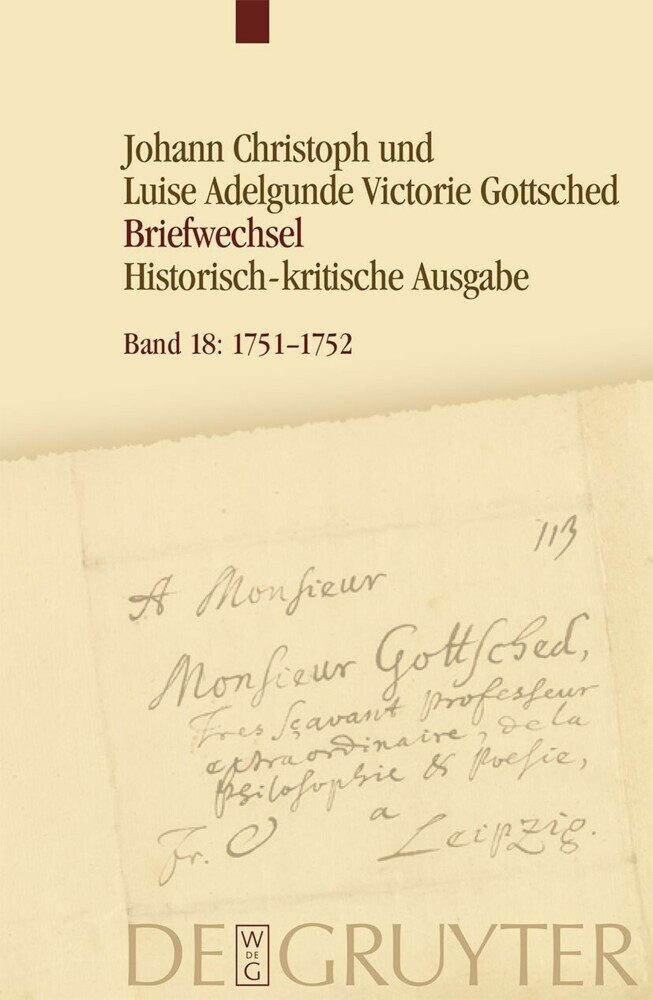 Johann Christoph und
Luise Adelgunde Victorie Gottsched
Briefwechsel
Historisch-kritische Ausgabe
Band 18: 1751–1752
113
A Monsieur
Monsieur Gottsched,
Tres sçavant professeur
extraordinaire, de la
philosophie & Poesie,
a
Fr. Leipzig.
DE GRUYTER
W
DE
G